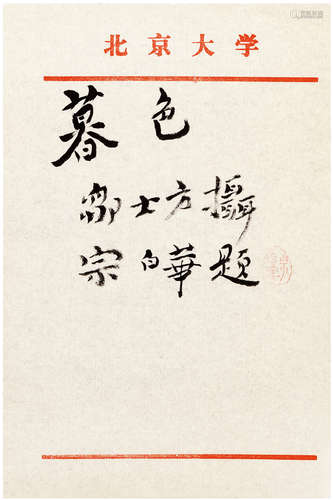 北京大学
暮色
鄒士方攝
宗白華題